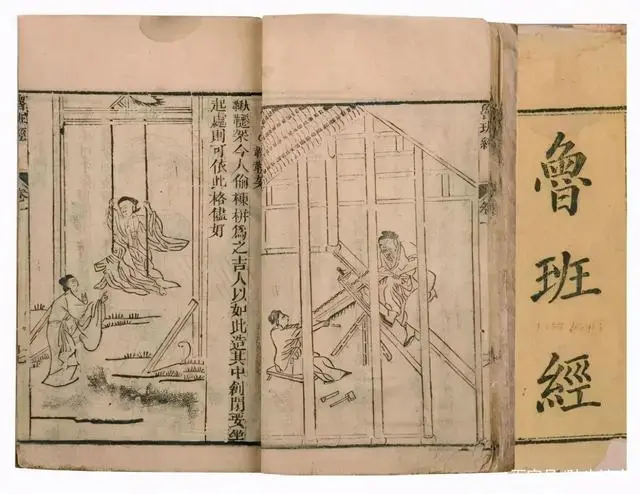 魯班經
魯班經
卷一
鞦韆架今人偷棟栟爲之吉人以如此造其中創閒要坐
起處則可依此格儘好
魯班經
卷一